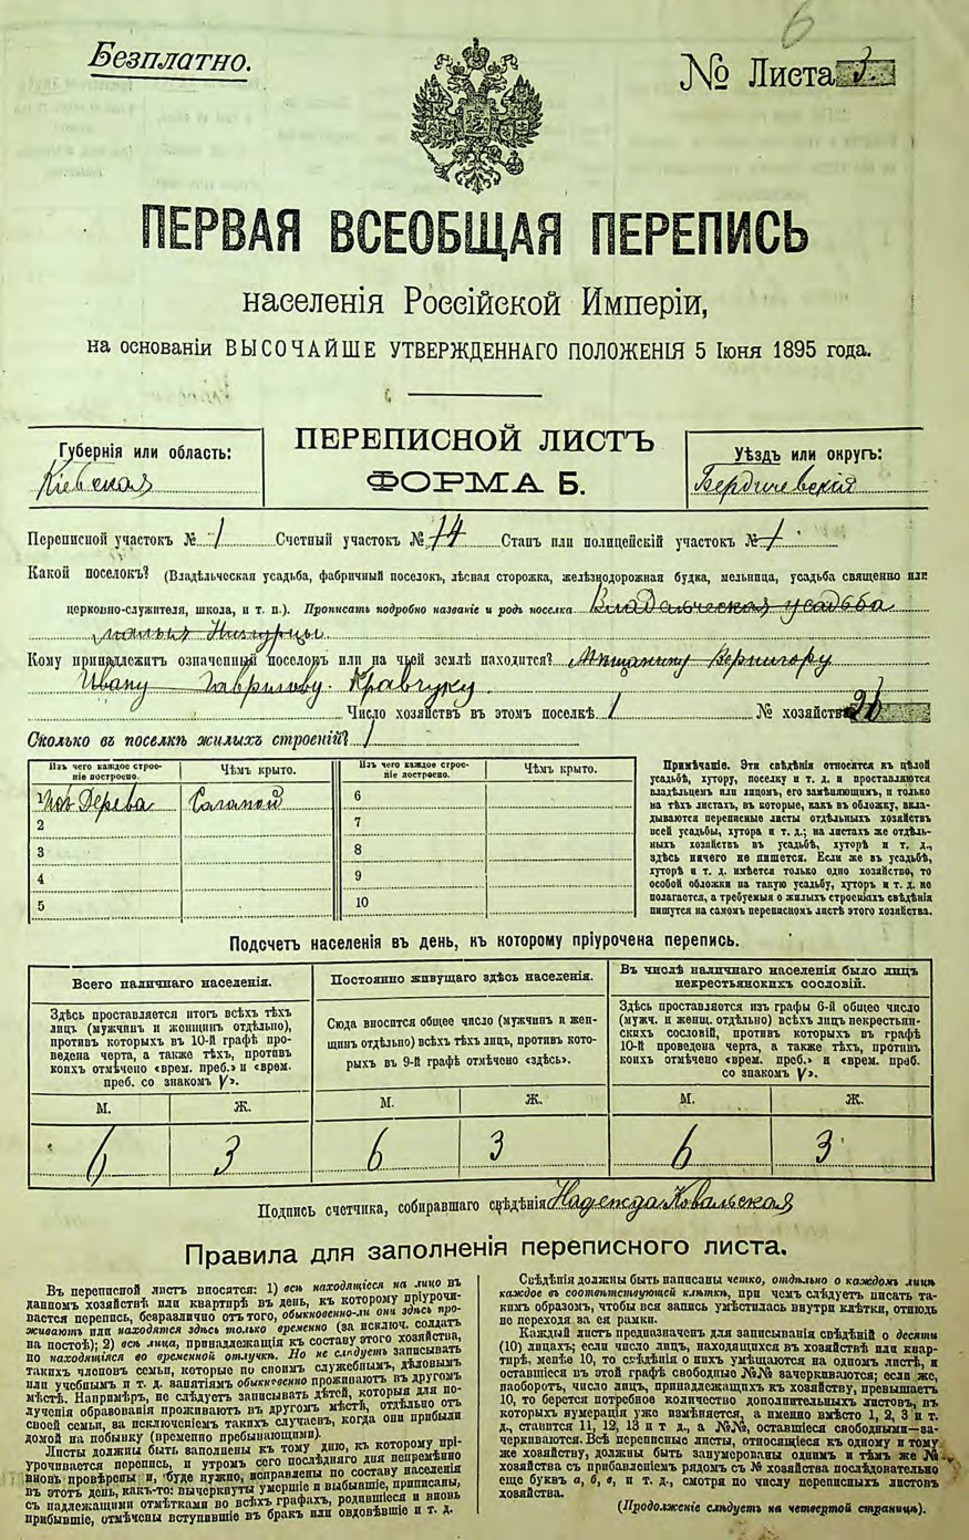 6
Безплатно.
№ Листа 3.
ПЕРВАЯ ВСЕОБЩАЯ ПЕРЕПИСЬ
населенія Россійской Имперіи,
на основаніи ВЫСОЧАЙШЕ УТВЕРЖДЕННАГО ПОЛОЖЕНІЯ 5 Іюня 1895 года.
Губернія или область:
Кіевская
ПЕРЕПИСНОЙ ЛИСТЪ
ФОРМА Б.
Уѣздъ или округъ:
Бердичевскій
Переписной участокъ № 1 Счетный участокъ № 14 Станъ или полицейскій участокъ № 1
Какой поселокъ? (Владѣльческая усадьба, фабричный поселокъ, лѣсная сторожка, желѣзнодорожная будка, мельница, усадьба священно или
церковно-служителя, школа, и т. п.). Прописать подробно названіе и родъ поселка Владѣльческая усадьба
Кому принадлежитъ означенный поселокъ или на чьей землѣ находится? Мѣщанину
Ивану Гаврилову Кравчуку.
Число хозяйствъ въ этомъ поселкѣ 1 № хозяйства
Сколько въ поселкѣ жилыхъ строеній? 1
Изъ чего каждое строеніе построено. Чѣмъ крыто. Изъ чего каждое строеніе построено. Чѣмъ крыто.
1 Изъ Дерева Саламой 6
2 7
3 8
4 9
5 10
Примѣчаніе. Эти свѣдѣнія относятся къ цѣлой
усадьбѣ, хутору, поселку и т. д. и проставляются
владѣльцемъ или лицомъ, его замѣняющимъ, и только
на тѣхъ листахъ, въ которые, какъ въ обложку, вкла-
дываются переписные листы отдѣльныхъ хозяйствъ
всей усадьбы, хутора и т. д.; на листахъ же отдѣль-
ныхъ хозяйствъ въ усадьбѣ, хуторѣ и т. д.,
здѣсь ничего не пишется. Если же въ усадьбѣ,
хуторѣ и т. д. имѣется только одно хозяйство, то
особой обложки на такую усадьбу, хуторъ и т. д. не
полагается, а требуемыя о жилыхъ строеніяхъ свѣдѣнія
пишутся на самомъ переписномъ листѣ этого хозяйства.
Подсчетъ населенія въ день, къ которому пріурочена перепись.
Всего наличнаго населенія.
Здѣсь проставляется итогъ всѣхъ тѣхъ
лицъ (мужчинъ и женщинъ отдѣльно),
противъ которыхъ въ 10-й графѣ про-
ведена черта, а также тѣхъ, противъ
коихъ отмѣчено «врем. преб.» и «врем.
преб. со знакомъ V».
М. Ж.
6 3
Постоянно живущаго здѣсь населенія.
Сюда вносится общее число (мужчинъ и жен-
щинъ отдѣльно) всѣхъ тѣхъ лицъ, противъ кото-
рыхъ въ 9-й графѣ отмѣчено «здѣсь».
М. Ж.
6 3
Въ числѣ наличнаго населенія было лицъ
некрестьянскихъ сословій.
Здѣсь проставляется изъ графы 6-й общее число
(мужч. и женщ. отдѣльно) всѣхъ лицъ некрестьян-
скихъ сословій, противъ которыхъ въ графѣ
10-й проведена черта, а также тѣхъ, противъ
коихъ отмѣчено «врем. преб.» и «врем. преб.
со знакомъ V».
М. Ж.
6 3
Подпись счетчика, собиравшаго свѣдѣнія Надежда Ковальская
Правила для заполненія переписного листа.
Въ переписной листъ вносятся: 1) всѣ находящіеся на лицо въ
данномъ хозяйствѣ или квартирѣ въ день, къ которому пріурочи-
вается перепись, безразлично отъ того, обыкновенно-ли они здѣсь про-
живаютъ или находятся здѣсь только временно (за исключ. солдатъ
на постоѣ); 2) всѣ лица, принадлежащія къ составу этого хозяйства,
но находящіяся во временной отлучкѣ. Но не слѣдуетъ записывать
такихъ членовъ семьи, которые по своимъ служебнымъ, дѣловымъ
или учебнымъ и т. д. занятіямъ обыкновенно проживаютъ въ другомъ
мѣстѣ. Напримѣръ, не слѣдуетъ записывать дѣтей, которыя для по-
лученія образованія проживаютъ въ другомъ мѣстѣ, отдѣльно отъ
своей семьи, за исключеніемъ такихъ случаевъ, когда они прибыли
домой на побывку (временно пребывающими).
Листы должны быть заполнены къ тому дню, къ которому прі-
урочивается перепись, и утромъ сего послѣдняго дня непремѣнно
вновь провѣрены и, буде нужно, исправлены по составу населенія
въ этотъ день, какъ-то: вычеркнуты умершіе и выбывшіе, приписаны,
съ надлежащими отмѣтками во всѣхъ графахъ, родившіеся и вновь
прибывшіе, отмѣчены вступившіе въ бракъ или овдовѣвшіе и т. д.
Свѣдѣнія должны быть написаны четко, отдѣльно о каждомъ лицѣ
каждое въ соотвѣтствующей клѣткѣ, при чемъ слѣдуетъ писать та-
кимъ образомъ, чтобы вся запись умѣстилась внутри клѣтки, отнюдь
не переходя за ея рамки.
Каждый листъ предназначенъ для записыванія свѣдѣній о десяти
(10) лицахъ; если число лицъ, находящихся въ хозяйствѣ или квар-
тирѣ, менѣе 10, то свѣдѣнія о нихъ умѣщаются на одномъ листѣ, и
оставшіеся въ этой графѣ свободные №№ зачеркиваются; если же,
наоборотъ, число лицъ, принадлежащихъ къ хозяйству, превышаетъ
10, то берется потребное количество дополнительныхъ листовъ, въ
которыхъ нумерація уже измѣняется, а именно вмѣсто 1, 2, 3 и т.
д., ставится 11, 12, 13 и т д., а №№, оставшіеся свободными—за-
черкиваются. Всѣ переписные листы, относящіеся къ одному и тому
же хозяйству, должны быть занумерованы однимъ и тѣмъ же №
хозяйства съ прибавленіемъ рядомъ съ № хозяйства послѣдовательно
еще буквъ а, б, в, и т. д., смотря по числу переписныхъ листовъ
хозяйства.
(Продолженіе слѣдуетъ на четвертой страницѣ).